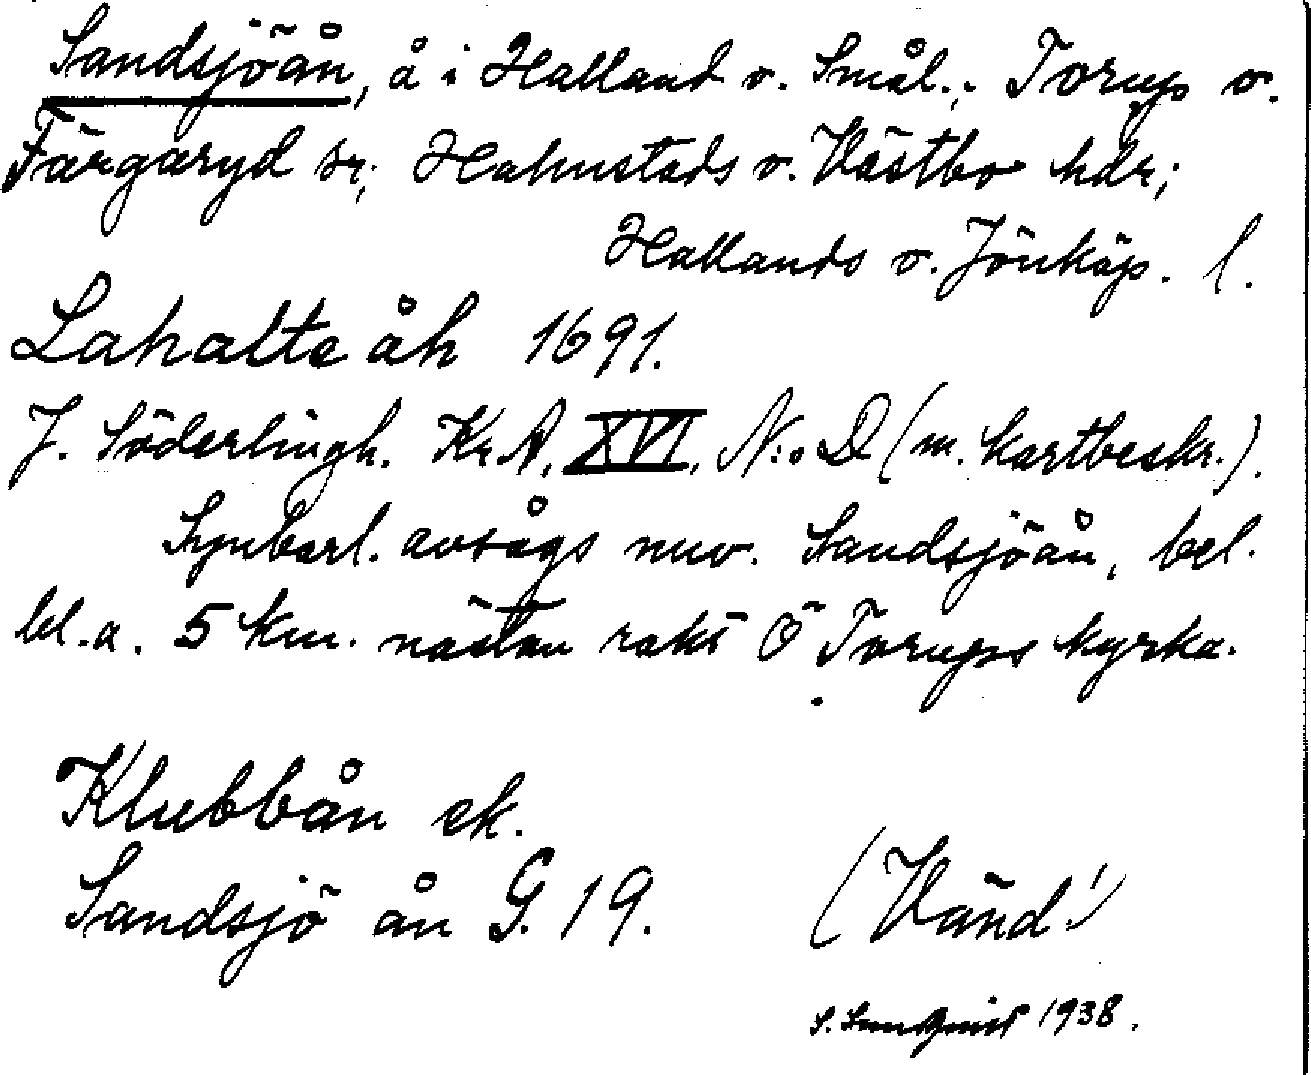 Sandsjöån, å i Halland o. Smål.; Torup o.
Färgaryd sr; Halmstads o. Västbo hdr;
Hallands o. Jönköp. l.
Lahalte åh 1691.
J. Söderlingh. Kr A, XVI, N:o D (m. kartbeskr.).
Synbarl. avsågs nuv. Sandsjöån, bel.
bl.a. 5 km. nästan rakt Ö Torups kyrka.
Klubbån ek.
Sandsjö ån G. 19.
(Vänd!)
S. Sunqvist 1938.